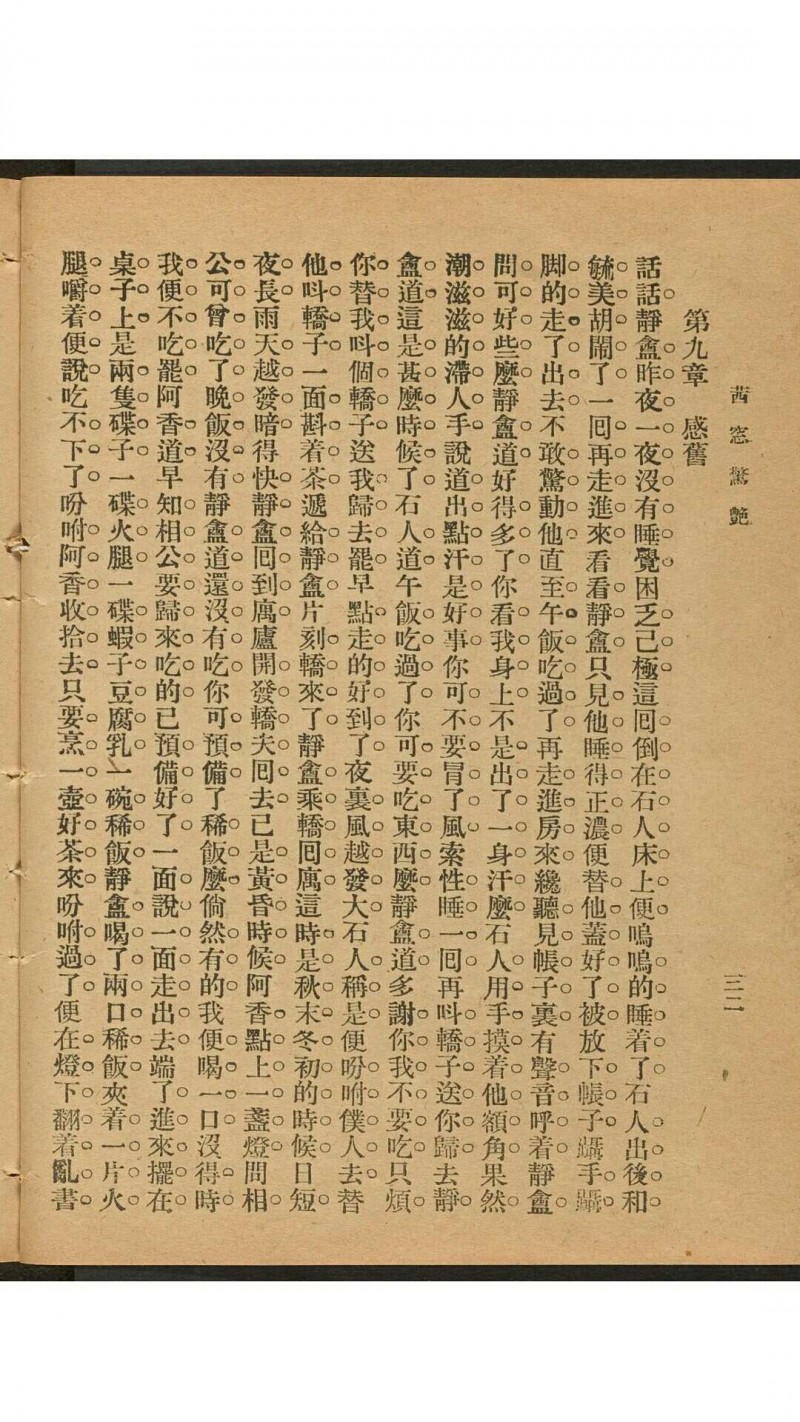 茜窓驚艶
三二
第九章　感舊
話話靜盦昨夜一夜沒有睡覺困乏已極這囘倒在石人床上便嗚嗚的睡着了石人出後和
毓美胡鬧了一囘再走進來看看靜盦只見他睡得正濃便替他蓋好了被放下帳子躡手躡
脚的走了出去不敢驚動他直至午飯吃過了再走進房來纔聽見帳子裏有聲音呼着靜盦
問可好些麼靜盦道好得多了你看我身上不是出了一身汗麼石人用手摸着他額角果然
潮滋滋的滯人手說道出點汗是好事你可不要冒了風索性睡一囘再呌轎子送你歸去靜
盦道這是甚麼時候了石人道午飯吃過了你可要吃東西麼靜盦道多謝你我不要吃只煩
你替我呌個轎子送我歸去罷早點走的好到了夜裏風越發大石人稱是便吩咐僕人去替
他呌轎子一面斟着茶遞給靜盦片刻轎來了靜盦乘轎囘寓這時是秋末冬初的時候日短
夜長雨天越發暗得快靜盦囘到寓廬開發轎夫囘去已是黃昏時候阿香點上一盞燈問相
公可曾吃了晚飯沒有靜盦道還沒有吃你可預備了稀飯麼倘然有的我便喝一口沒得時
我便不吃罷阿香道早知相公要歸來吃的已預備好了一面說一面走出去端了進來擺在
桌子上是兩隻碟子一碟火腿一碟蝦子豆腐乳一碗稀飯靜盦喝了兩口稀飯夾着一片火
腿嚼着便說吃不下了吩咐阿香收拾去只要烹一壺好茶來吩咐過了便在燈下翻着亂書